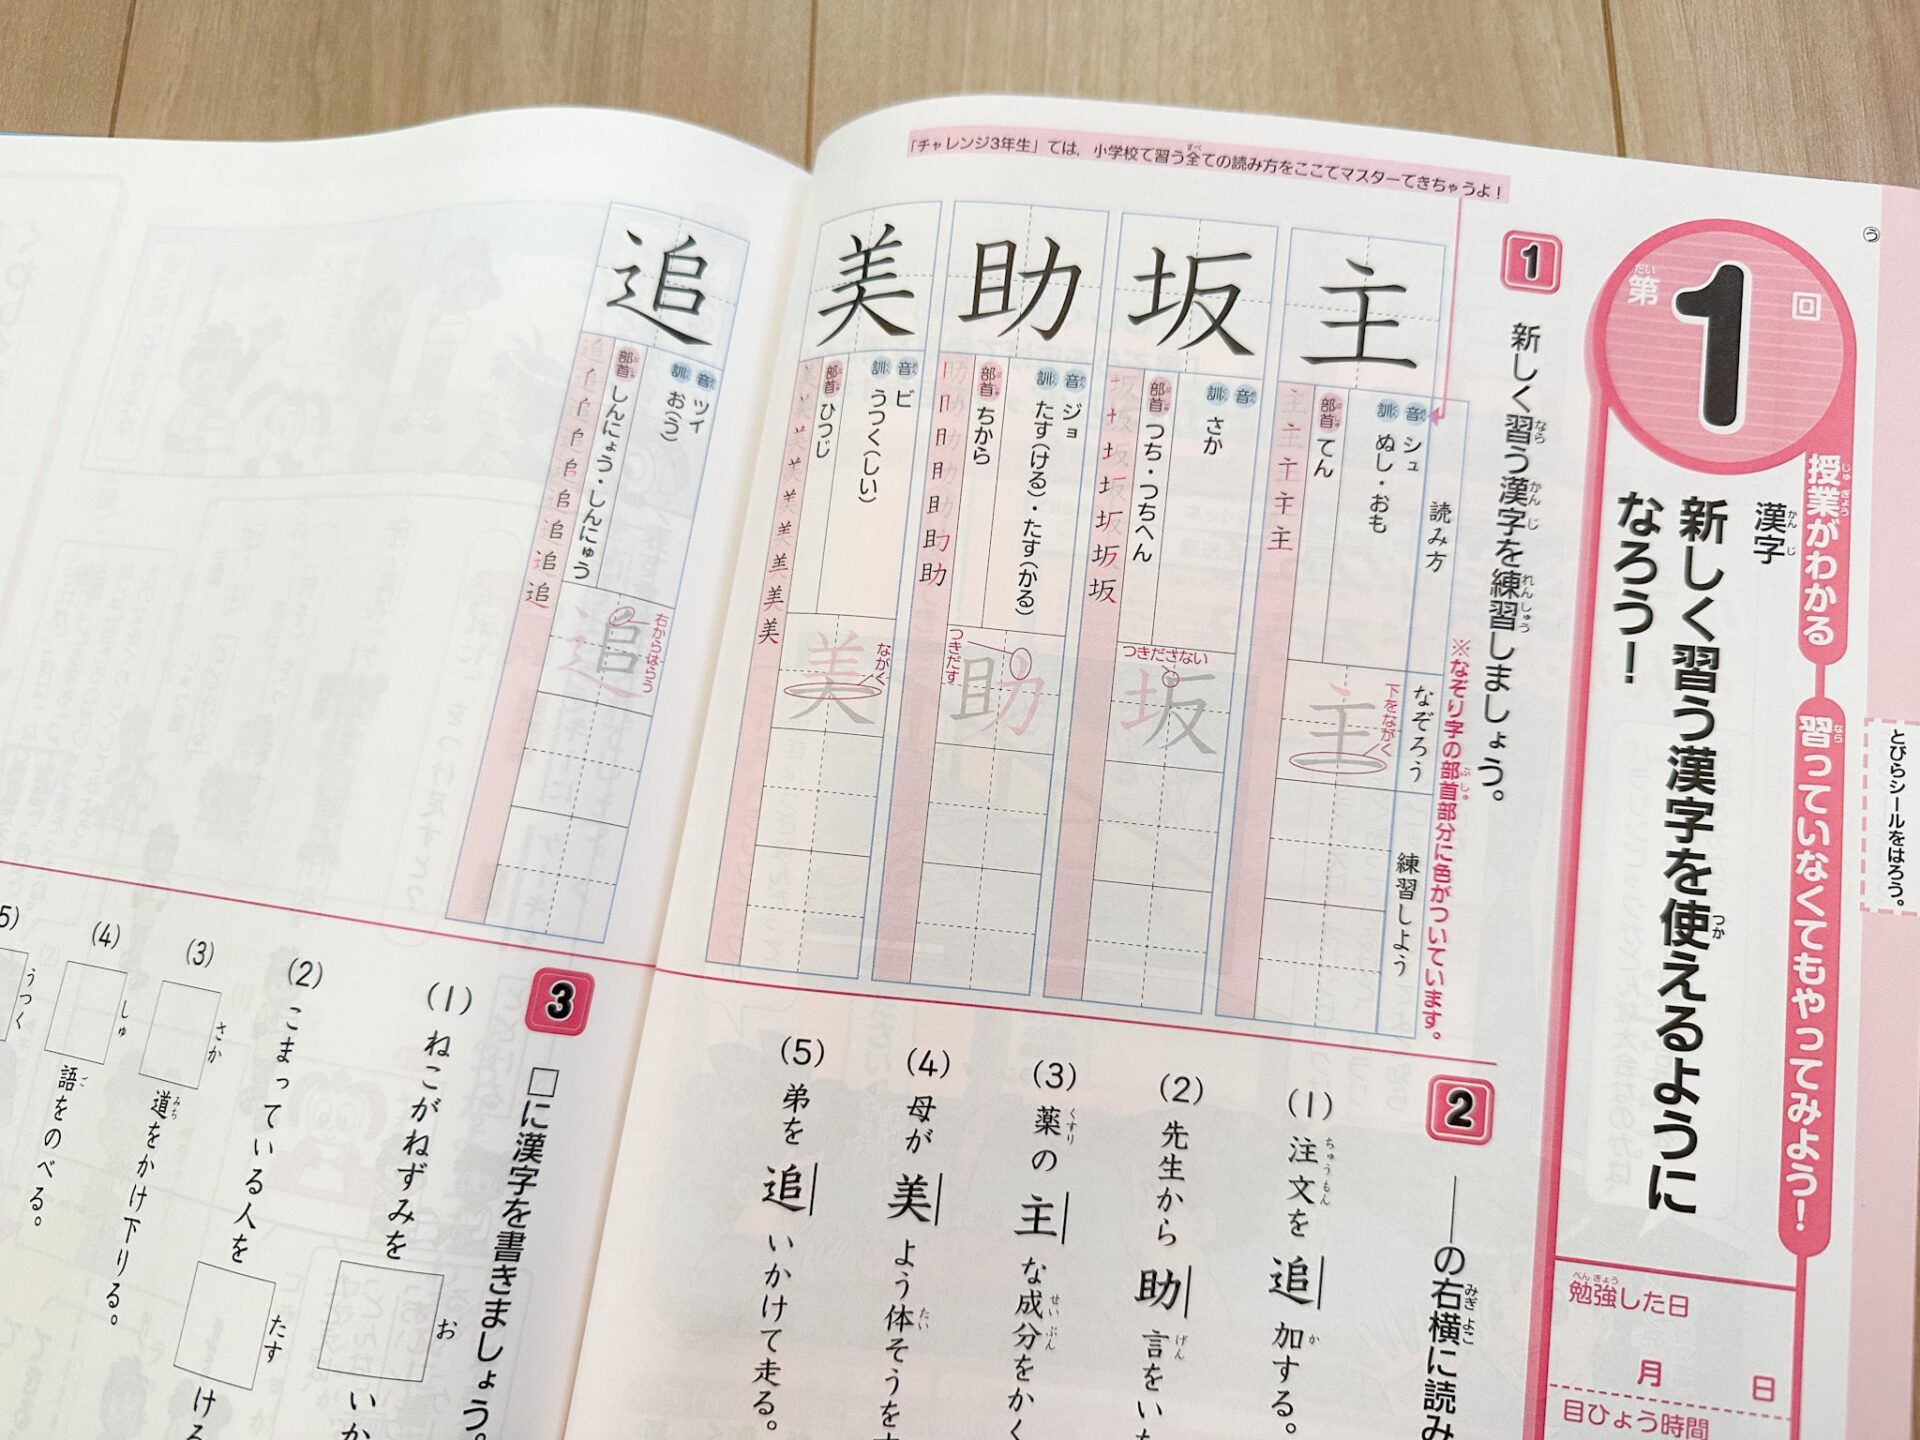 「チャレンジ3年生」では、小学校で習う全ての読み方をここでマスターできちゃうよ！
う
とびらシールをはろう。
第1回
授業がわかる
習っていなくてもやってみよう！
漢字
新しく習う漢字を使えるように
なろう！
勉強した日
月 日
目ひょう時間
1 新しく習う漢字を練習しましょう。
※なぞり字の部首部分に色がついています。
読み方
なぞろう
練習しよう
主
音 シュ
訓 ぬし・おも
部首 てん
下をながく
坂
音
訓 さか
部首 つち・つちへん
つきださない
助
音 ジョ
訓 たす(ける)・たす(かる)
部首 ちから
つきだす
美
音 ビ
訓 うつく(しい)
部首 ひつじ
ながく
追
音 ツイ
訓 お(う)
部首 しんにょう・しんにゅう
右からはらう
2 ――の右横に読み
(1) 注文を追加する。
(2) 先生から助言をいた
(3) 薬の主な成分をかく
(4) 母が美よう体そうをす
(5) 弟を追いかけて走る。
3 □に漢字を書きましょう。
(1) ねこがねずみを□いか
お
(2) こまっている人を□ける
たす
(3) □道をかけ下りる。
さか
(4) □語をのべる。
しゅ
5)
うつく